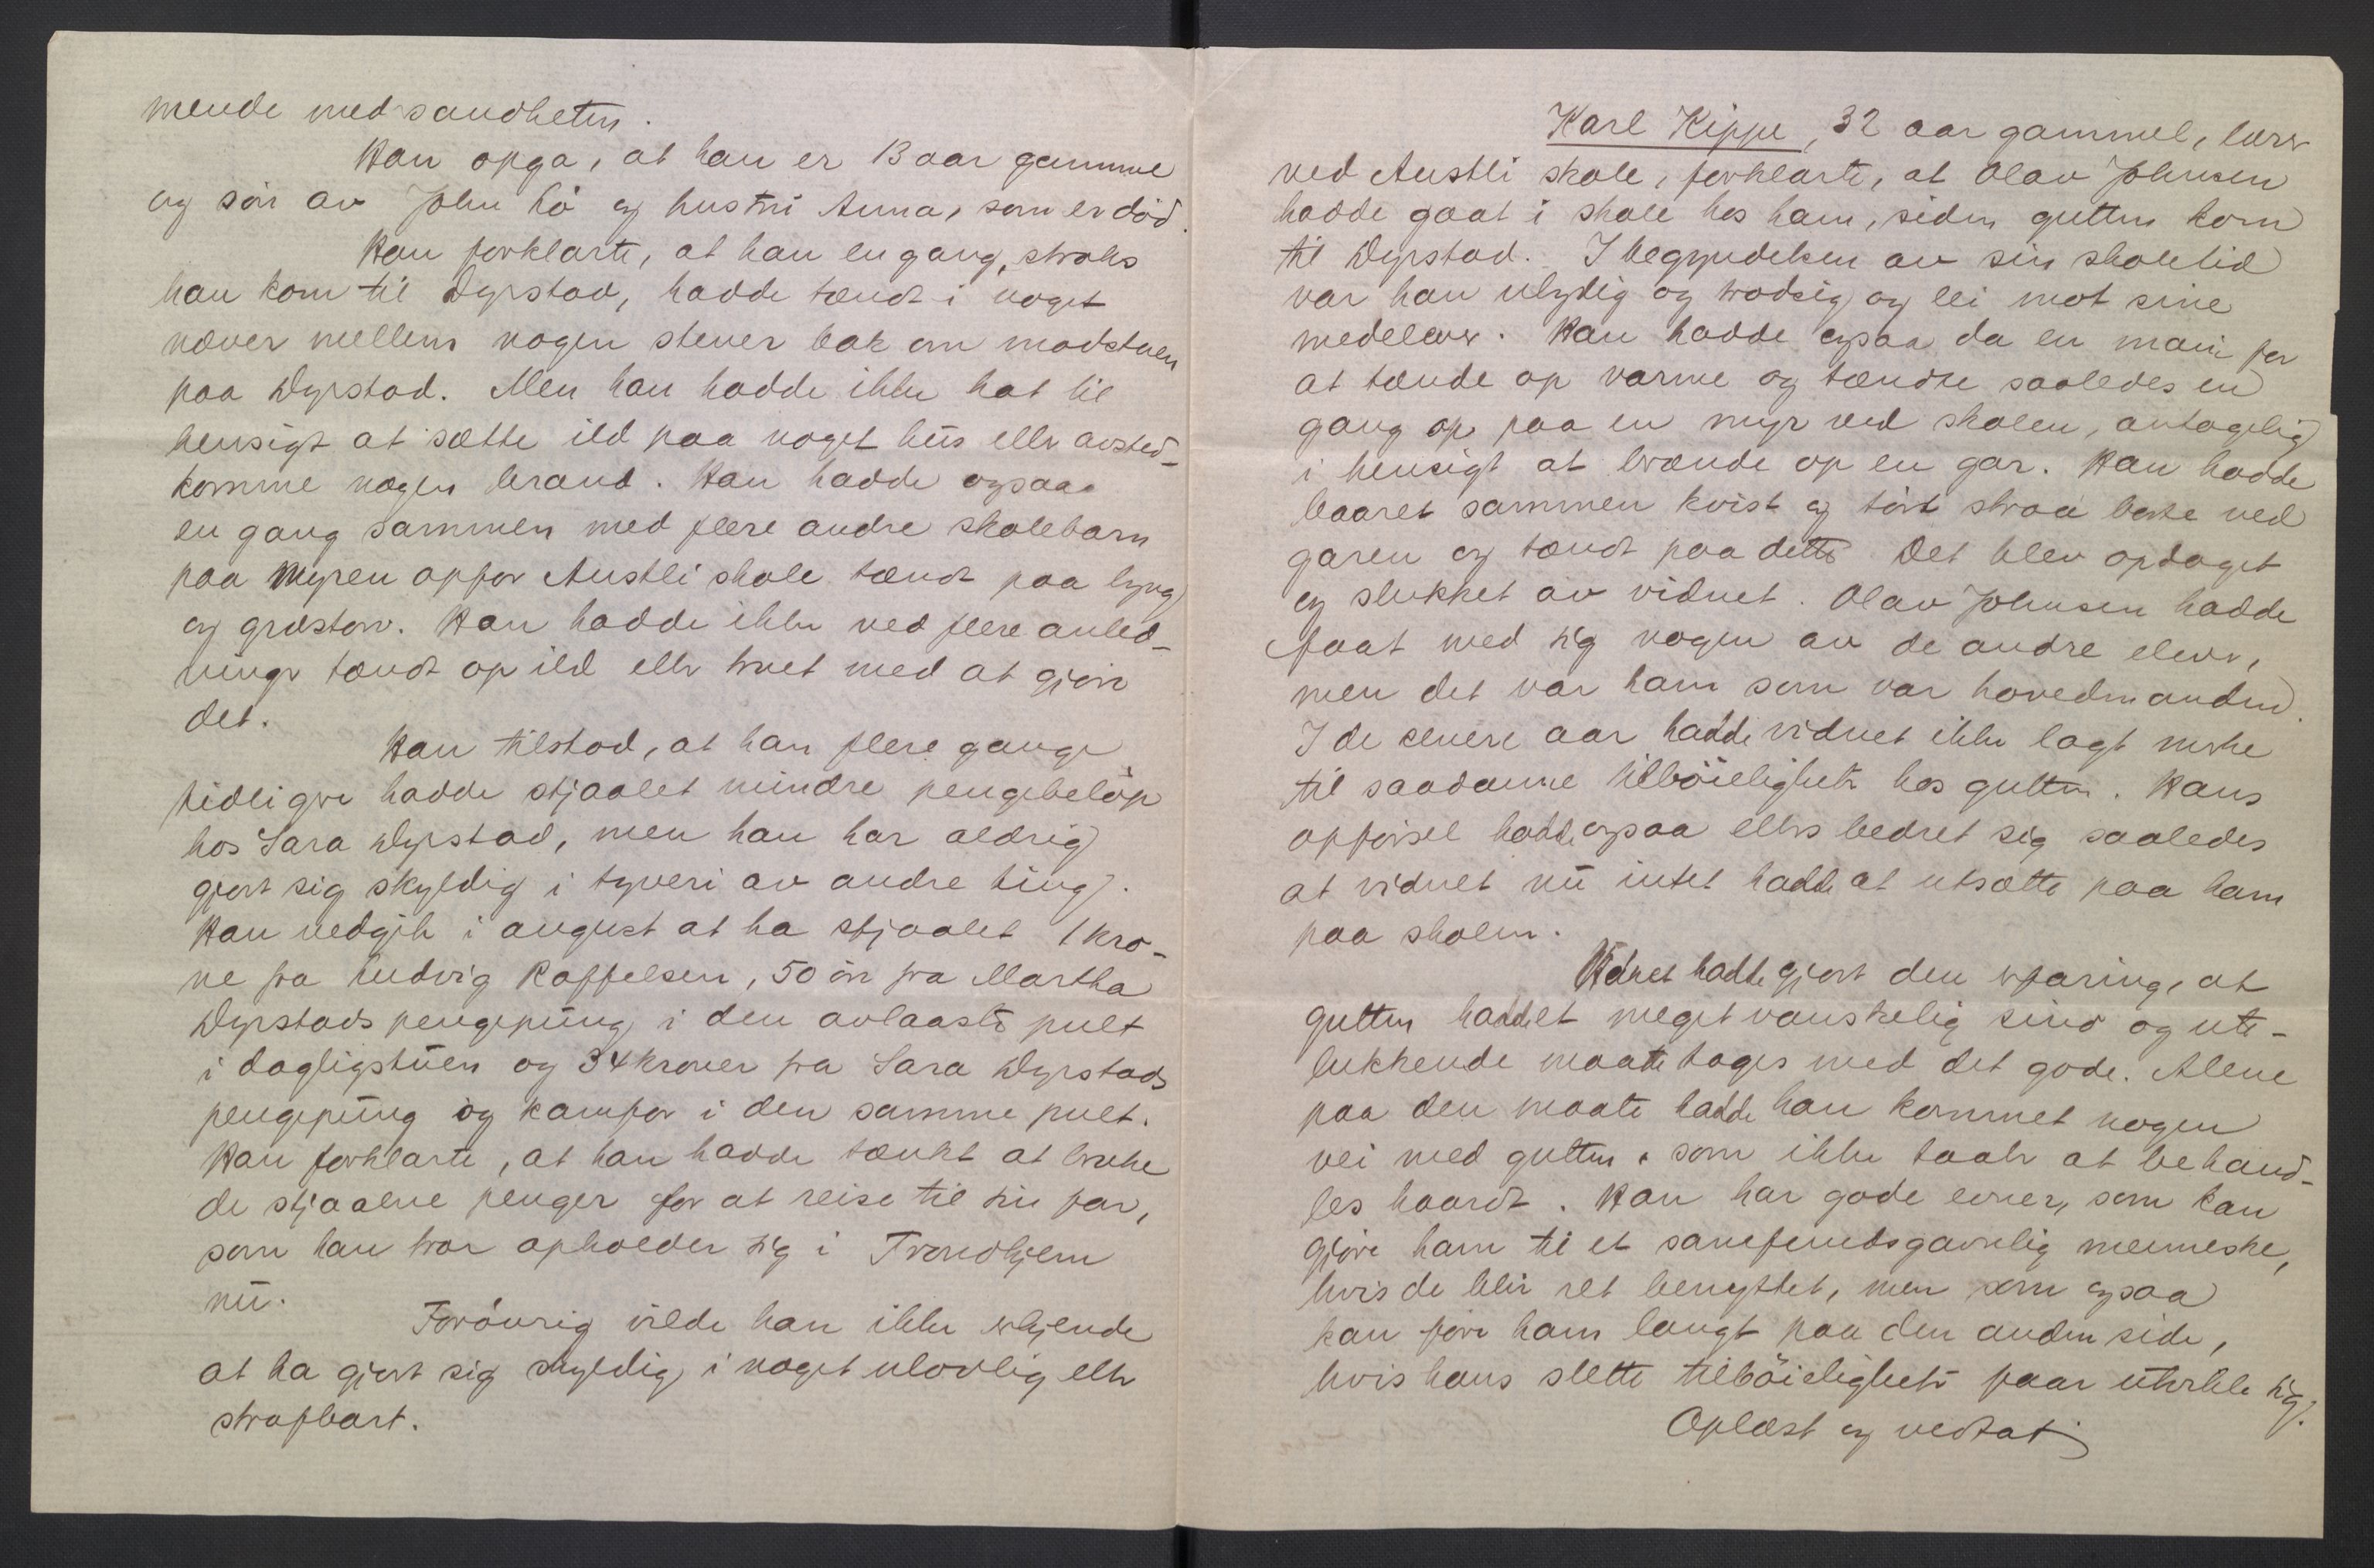 mende med sandheten.
Han opga, at han er 13 aar gammel
og søn av John Lø og hustru Anna, som er død.
Han forklarte, at han en gang, straks
han kom til Dyrstad, hadde tændt i noget
næver mellem nogen stener bak om madstuen
paa Dyrstad. Men han hadde ikke hat til
hensigt at sætte ild paa noget hus eller avsted-
komme nogen brand. Han hadde ogsaa
en gang sammen med flere andre skolebarn
paa Myren opfor Austli skole tændt paa lyng
og græstorv. Han hadde ikke ved flere anled-
ninger tændt op ild eller truet med at gjøre
det.
Han tilstod, at han flere gange
tidligere hadde stjaalet mindre pengebeløp
hos Sara Dyrstad, men han har aldrig
gjort sig skyldig i tyveri av andre ting.
Han vedgik i august at ha stjaalet 1 kro-
ne fra Ludvig Roffelsen, 50 øre fra Martha
Dyrstads pengepung i den avlaaste pult
i dagligstuen og 34 kroner fra Sara Dyrstads
pengepung og kamfor i den samme pult.
Han forklarte, at han hadde tænkt at bruke
de stjaalne penger for at reise til sin far,
som han tror opholder sig i Trondhjem
nu.
Forøvrig vilde han ikke erkjende
at ha gjort sig skyldig i noget ulovlig eller
strafbart.
Karl Kippe, 32 aar gammel, lærer
ved Austli skole, forklarte, at Olav Johnsen
hadde gaat i skole hos ham, siden gutten kom
til Dyrstad. I begyndelsen av sin skoletid
var han ulydig og trodsig og lei mot sine
medelever. Han hadde ogsaa da en mani for
at tænde op varme og tændte saaledes en
gang op paa en myr ved skolen, antagelig
i hensigt at brænde op en gar. Han hadde
baaret sammen kvist og tørt straa borte ved
garen og tændt paa dette. Det blev opdaget
og slukket av vidnet. Olav Johnsen hadde
faat med sig nogen av de andre elever,
men det var ham som var hovedmanden.
I de senere aar hadde vidnet ikke lagt merke
til saadanne tilbøieligheter hos gutten. Hans
opførsel hadde ogsaa ellers bedret sig saaledes
at vidnet nu intet hadde at utsætte paa ham
paa skolen.
Vidnet hadde gjort den erfaring, at
gutten hadde et meget vanskelig sind og ute-
lukkende maatte tages med det gode. Alene
paa den maate hadde han kommet nogen
vei med gutten, som ikke taaler at behand-
les haardt. Han har gode evner, som kan
gjøre ham til et samfundsgavnlig menneske,
hvis de blir ret benyttet, men som ogsaa
kan føre ham langt paa den anden side,
hvis hans slette tilbøieligheter faar utvikle sig.
Oplæst og vedtat